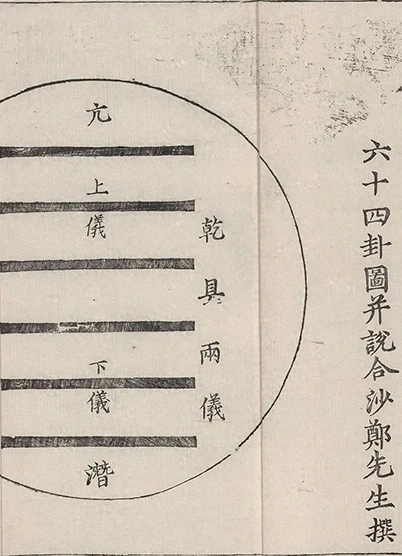 六十四卦圖并說合沙鄭先生撰
乾具兩儀
亢
上儀
下儀
潛